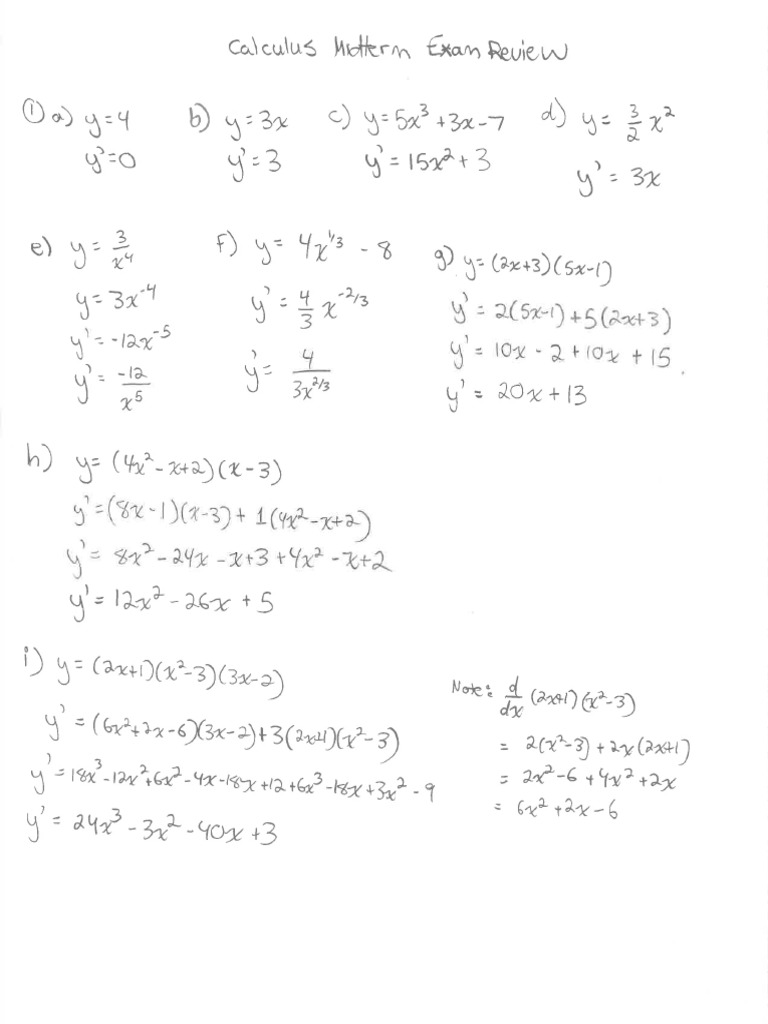 Calculus Midterm Exam Review
① a) y=4 b) y=3x c) y=5x³+3x-7 d) y= 3/2 x²
y'=0 y'=3 y'=15x²+3 y'=3x
e) y= 3/x⁴
y=3x⁻⁴
y'=-12x⁻⁵
y'= -12/x⁵
f) y= 4x^1/3 - 8
y'= 4/3 x^-2/3
y'= 4/3x^2/3
g) y=(2x+3)(5x-1)
y'=2(5x-1)+5(2x+3)
y'=10x-2+10x+15
y'=20x+13
h) y=(4x²-x+2)(x-3)
y'=(8x-1)(x-3)+1(4x²-x+2)
y'=8x²-24x-x+3+4x²-x+2
y'=12x²-26x+5
i) y=(2x+1)(x²-3)(3x-2)
y'=(6x²+2x-6)(3x-2)+3(2x+1)(x²-3)
y'=18x³-12x²+6x²-4x-18x+12+6x³-18x+3x²-9
y'=24x³-3x²-40x+3
Note: d/dx (2x+1)(x²-3)
=2(x²-3)+2x(2x+1)
=2x²-6+4x²+2x
=6x²+2x-6